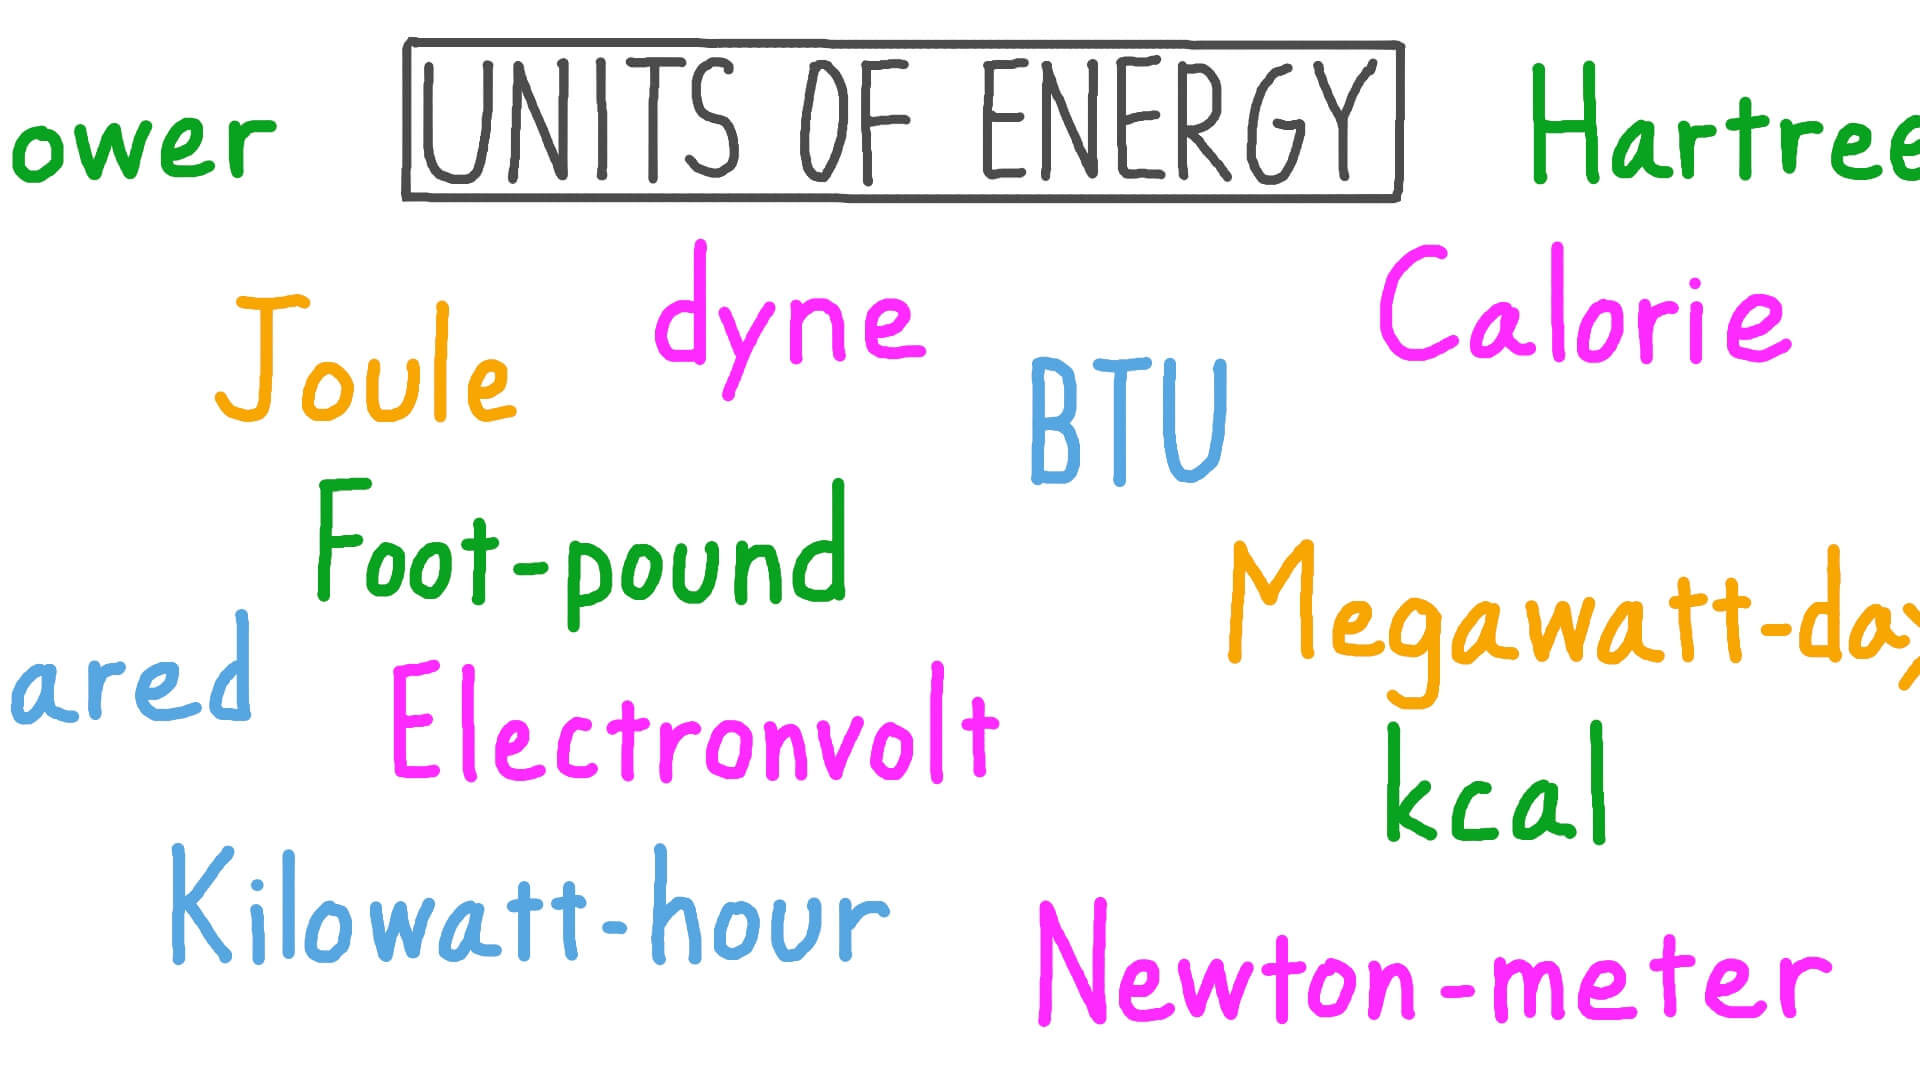 UNITS OF ENERGY
ower
Hartree
Joule
dyne
Calorie
BTU
Foot-pound
Megawatt-day
ared
Electronvolt
kcal
Kilowatt-hour
Newton-meter